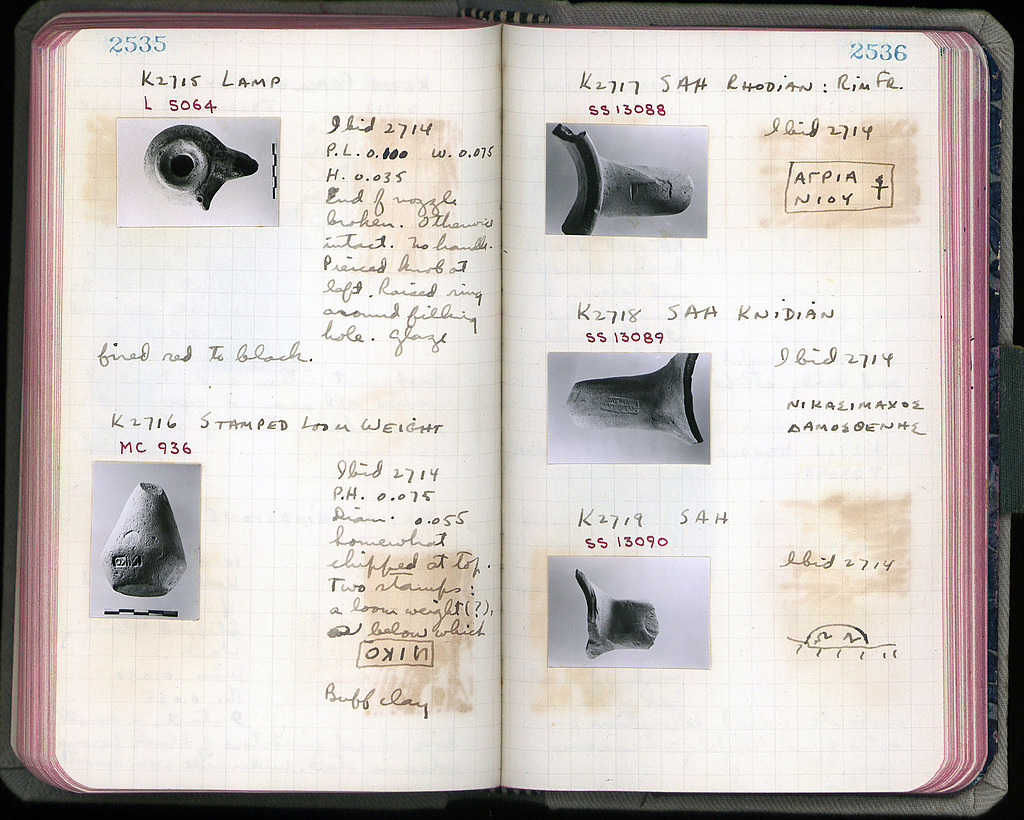 2535
K2715 LAMP
L 5064
Ibid 2714
P.L. 0.100 W. 0.075
H. 0.035
End of nozzle
broken. Otherwise
intact. No handle.
Pierced knob at
left. Raised ring
around filling
hole. Glaze
fired red to black.
K2716 STAMPED LOOM WEIGHT
MC 936
Ibid 2714
P.H. 0.075
Diam. 0.055
Somewhat
chipped at top.
Two stamps:
a loom weight(?),
below which
ΟΚΙИ
Buff clay
2536
K2717 SAH RHODIAN: Rim Fr.
SS 13088
Ibid 2714
ΑΓΡΙΑ
ΝΙΟΥ
K2718 SAH KNIDIAN
SS 13089
Ibid 2714
ΝΙΚΑΣΙΜΑΧΟΣ
ΔΑΜΟΣΘΕΝΗΣ
K2719 SAH
SS 13090
Ibid 2714